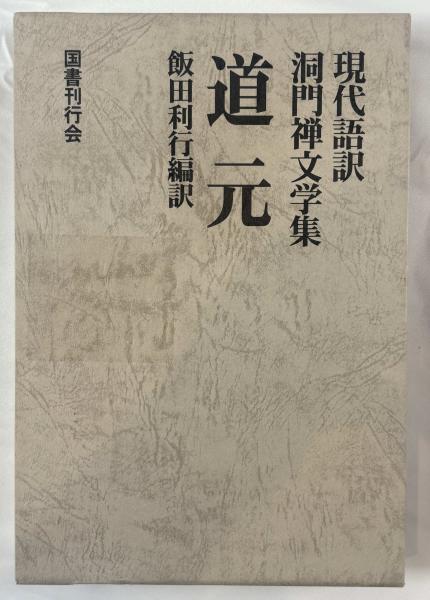 現代語訳
洞門禅文学集
道元
飯田利行編訳
国書刊行会